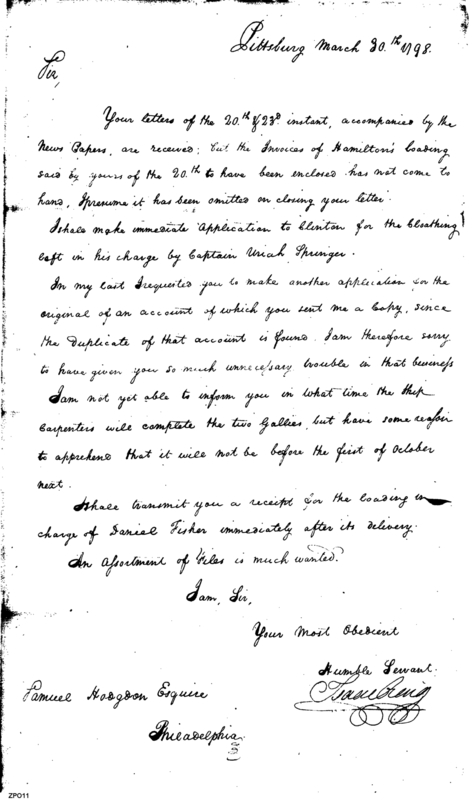 Pittsburg March 30.th 1798.
Sir,
Your letters of the 20.th & 23.d instant, accompanied by the
News Papers, are received; but the Invoices of Hamilton's loading
said by yours of the 20.th to have been enclosed has not come to
hand, I presume it has been omitted on closing your letter.
I shale make immediate Application to Clinton for the Cloathing
left in his charge by Captain Uriah Springer.
In my last I requested you to make another application for the
original of an account of which you sent me a Copy, since
the Duplicate of that account is found. I am therefore sorry
to have given you so much unnecessary trouble in that business
I am not yet able to inform you in what time the Ship
Carpenters will complete the two Gallies, but have some reason
to apprehend that it will not be before the first of October
next.
I shale transmit you a receipt for the loading in
charge of Daniel Fisher immediately after its delivery.
An Assortment of Files is much wanted.
I am, Sir,
Your Most Obedient
Humble Servant.
Isaac Craig
Samuel Hodgdon Esquire
Philadelphia
ZPO11